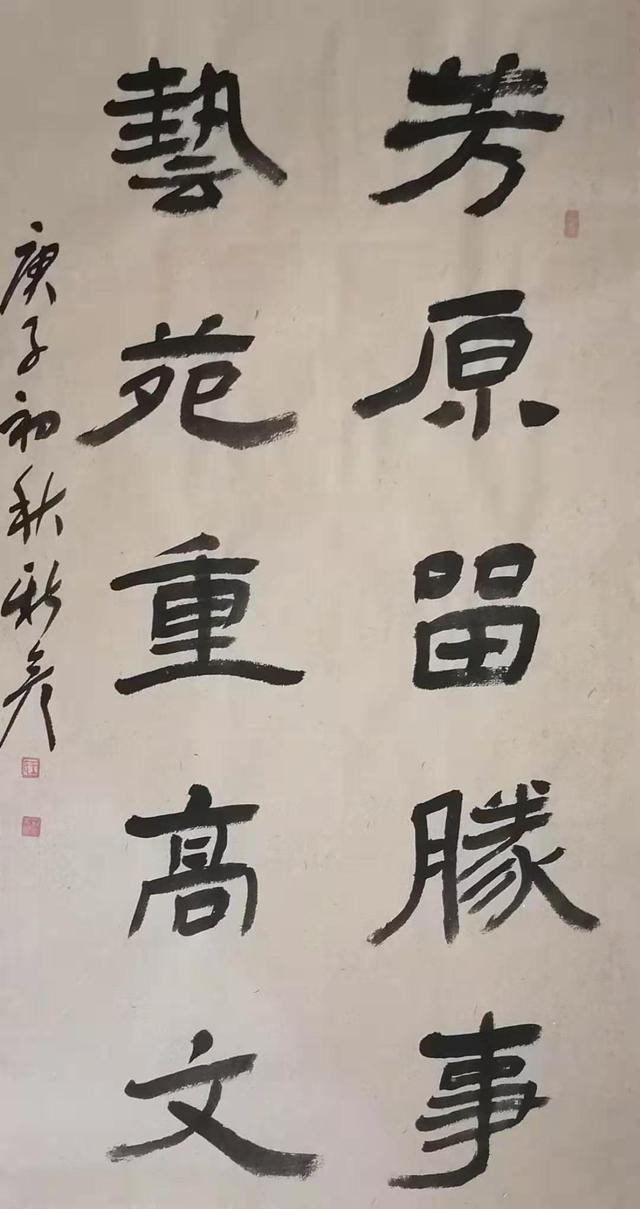 芳原留勝事
藝苑重高文
庚子初秋秋彦